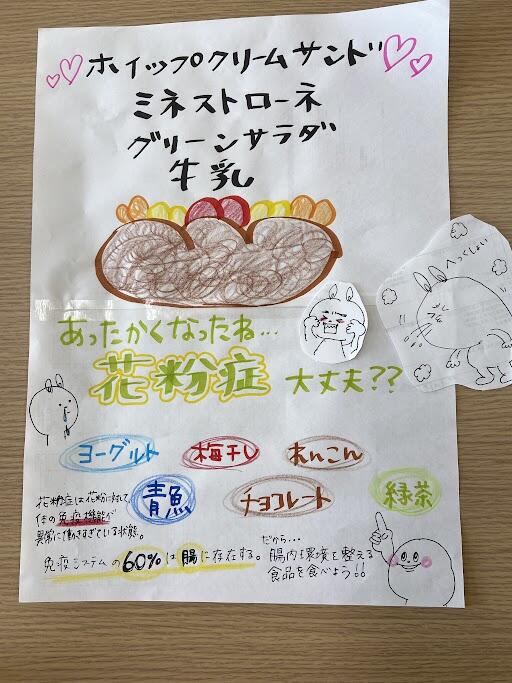 ホイップクリームサンド
ミネストローネ
グリーンサラダ
牛乳
へっくしょい
あったかくなったね…
花粉症 大丈夫??
ヨーグルト 梅干し れんこん
青魚 チョコレート 緑茶
花粉症は花粉に対して
体の免疫機能が
異常に働きすぎている状態。
免疫システムの60%は腸に存在する。
だから…
腸内環境を整える
食品を食べよう!!